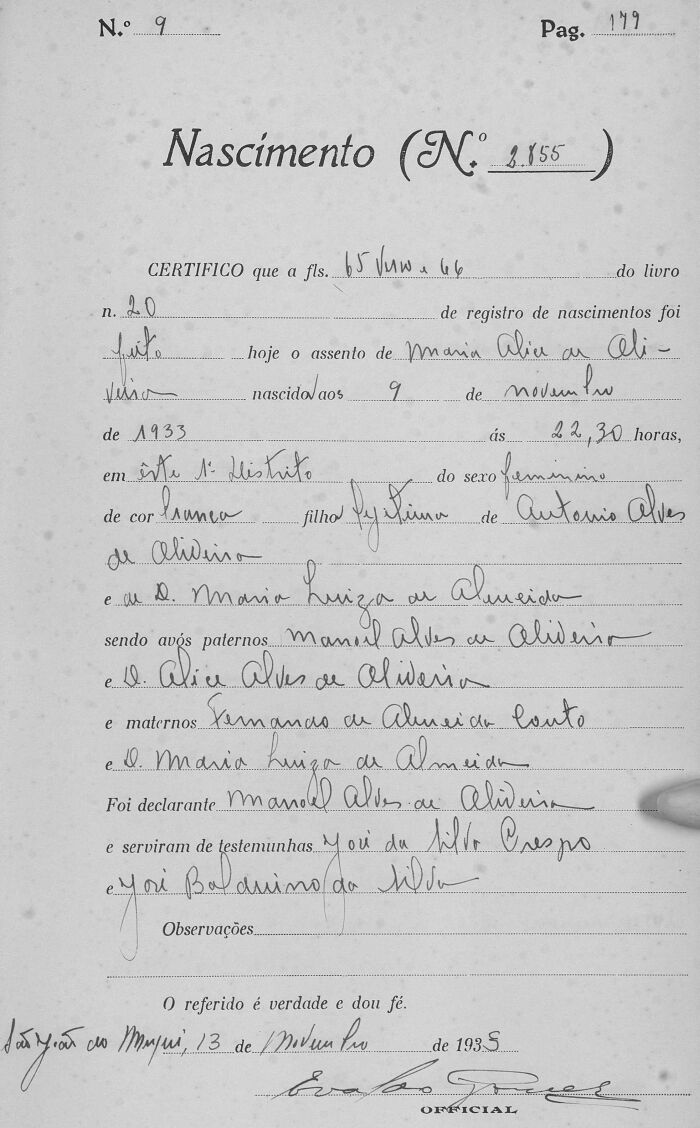 N.º 9 Pag. 179
Nascimento (N.º 2.855)
CERTIFICO que a fls. 65 Verso e 66 do livro
n. 20 de registro de nascimentos foi
feito hoje o assento de Maria Alice de Oli-
veira nascida aos 9 de novembro
de 1933 ás 22,30 horas,
em êste 1º Distrito do sexo feminino
de cor branca filha legitima de Antonio Alves
de Oliveira
e de D. Maria Luiza de Almeida
sendo avós paternos Manoel Alves de Oliveira
e D. Alice Alves de Oliveira
e maternos Fernando de Almeida Couto
e D. Maria Luiza de Almeida
Foi declarante Manoel Alves de Oliveira
e serviram de testemunhas José da Silva Crespo
e José Balduino da Silva
Observações
O referido é verdade e dou fé.
São João do Muqui, 13 de Novembro de 1933
Gomes
OFFICIAL